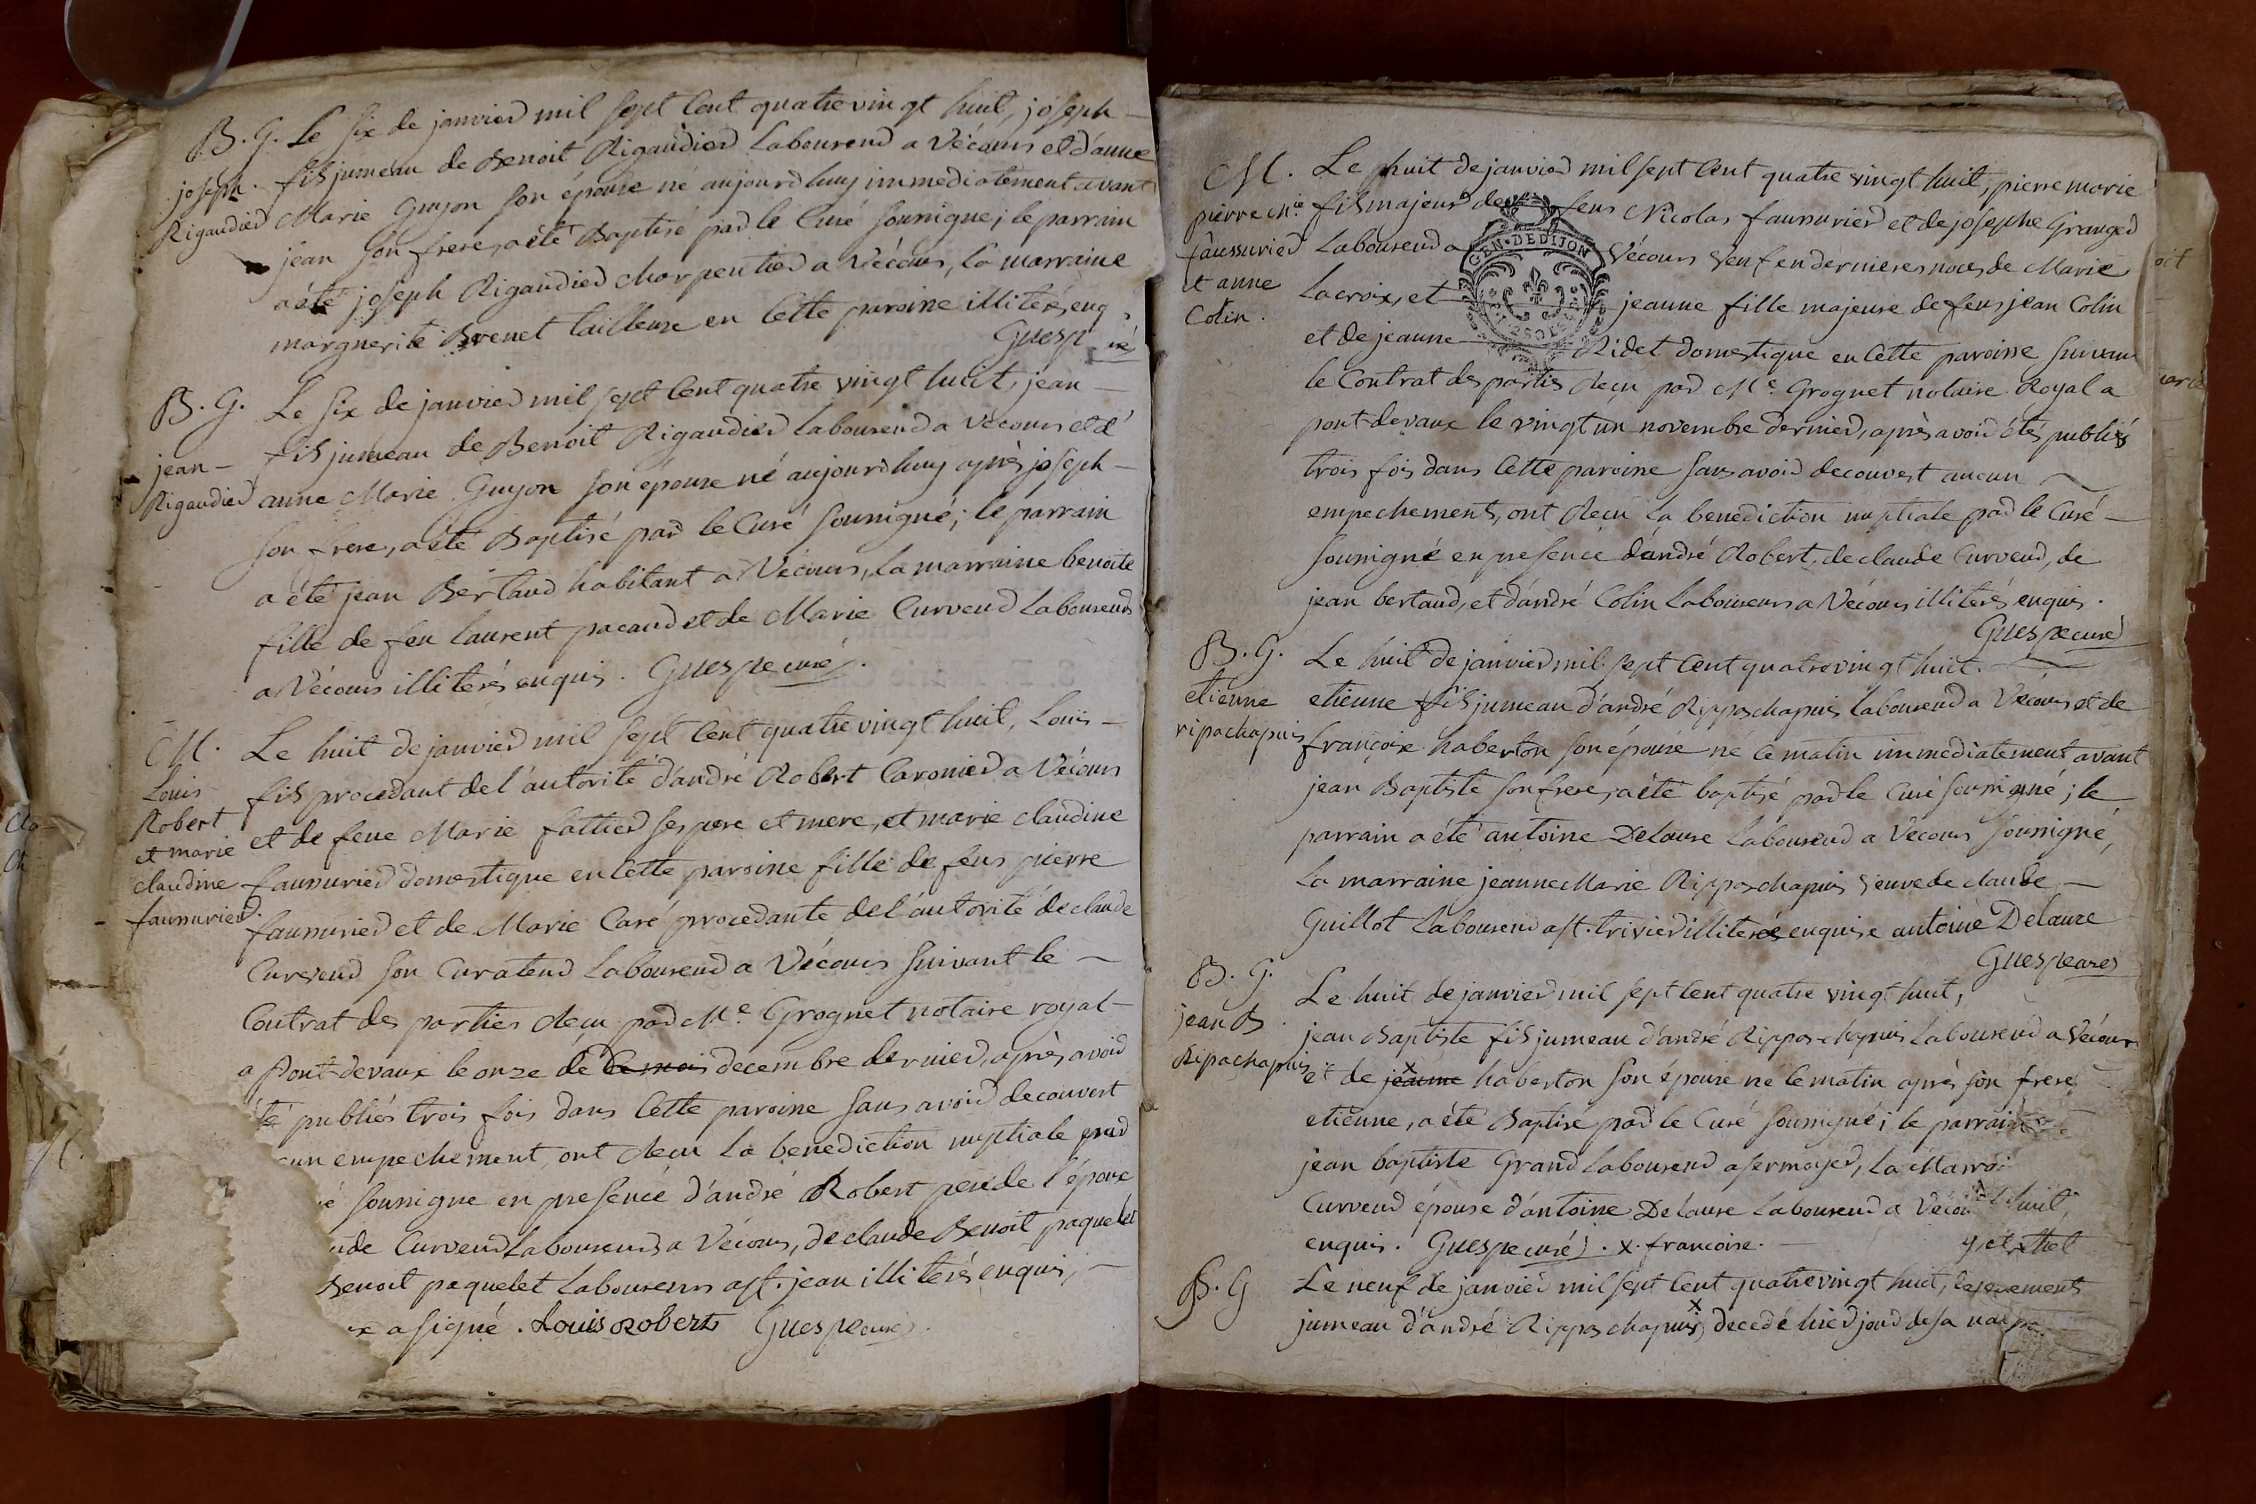 B. G. Le six de janvier mil sept Cent quatre vingt huit, joseph
joseph. fils jumeau de Benoit Rigaudier Laboureur a Vécours et d'anne
Rigaudier Marie Guyon son épouse né aujourd huy immediatement avant
jean son frere, a été Baptisé par le Curé soussigné; le parrain
a été joseph Rigaudier charpentier a Vécours, la marraine
marguerite Brenet tailleuse en Cette paroisse illiterés, enq
Guesp
B. G. Le six de janvier mil sept Cent quatre vingt huit, jean
jean - fils jumeau de Benoit Rigaudier laboureur a Vecours et d'
Rigaudier anne Marie Guyon son épouse né aujourd huy après joseph
son frere, a été Baptisé par le Curé soussigné; le parrain
a été jean Bertaud habitant a Vécours, la marraine benoite
fille de feu laurent pacaud et de Marie Curveur Laboureurs
a Vécours illiterés enquis. Guespe curé.
M. Le huit de janvier mil sept Cent quatre vingt huit, Louis
Louis fils procedant de l'autorité d'andré Robert Caronier a Vécours
Robert et de feue Marie fattier ses pere et mere, et marie claudine
et marie
claudine faussurier domestique en Cette paroisse fille de feus pierre
faussurier. faussurier et de Marie Caré procedante de l'autorité de claude
Curveur son Curateur Laboureur a Vécours suivant le
Contrat des parties Reçu par Me. Grognet notaire royal
a Pont-devaux le onze de ce mois decembre dernier, après avoir
été publiés trois fois dans Cette paroisse sans avoir decouvert
cun empechement, ont Reçu La benediction nuptiale par
é soussigné en presence d'andré Robert pere de l'époux
ude Curveur Laboureurs a Vécours, de claude Benoit paquelet
Benoit paquelet Laboureurs a st. jean illiterés enquis,
ux a signé. Louis Robert Guespe curé.
M. Le huit de janvier mil sept Cent quatre vingt huit, pierre marie
pierre mie fils majeur de feus Nicolas faussurier et de josephe Granger
faussurier Laboureur a Vécours veuf en dernieres noces de Marie
GEN. DE DIJON
et anne Lacroix, et jeanne fille majeure de feus jean Colin
Colin. et de jeanne Ridet domestique en Cette paroisse suivant
le Contrat des partis Reçu par Me. Grognet notaire Royal a
pont-devaux le vingt un novembre dernier, après avoir étés publiés
trois fois dans Cette paroisse sans avoir decouvert aucun
empechements, ont Reçu La benediction nuptiale par le Curé
soussigné en presence d'andré Robert, de claude Curveur, de
jean bertaud, et d'andré Colin Laboureurs a Vécours illiterés enquis.
Guespe curé
B. G. Le huit de janvier mil sept Cent quatre vingt huit.
etienne etienne fils jumeau d'andré Rippaschapuis laboureur a Vécours et de
ripachapuis françoise haberton son épouse né ce matin immediatement avant
jean Baptiste son frere, a été baptisé par le Curé soussigné; le
parrain a été antoine Delaure laboureur a Vécours soussigné,
La marraine jeanne Marie Rippaschapuis veuve de claude
Guillot laboureur a st. trivier illiterée enquise antoine Delaure
Guespe curé
B. G. Le huit de janvier mil sept Cent quatre vingt huit,
jean B. jean Baptiste fils jumeau d'andré Rippaschapuis Laboureur a Vécours
Ripachapuis et de jeanne x haberton son épouse né le matin après son frere
etienne, a été Baptisé par le Curé soussigné; le parrain
jean baptiste Grand Laboureur a sermoyer, La Marrai
Curveur épouse d'antoine Delaure Laboureur a Vécou huit,
enquis. Guespe curé. x. francoise.
B. G Le neuf de janvier mil sept Cent quatre vingt huit,
jumeau d'andré Rippaschapuis x decedé hier jour de sa